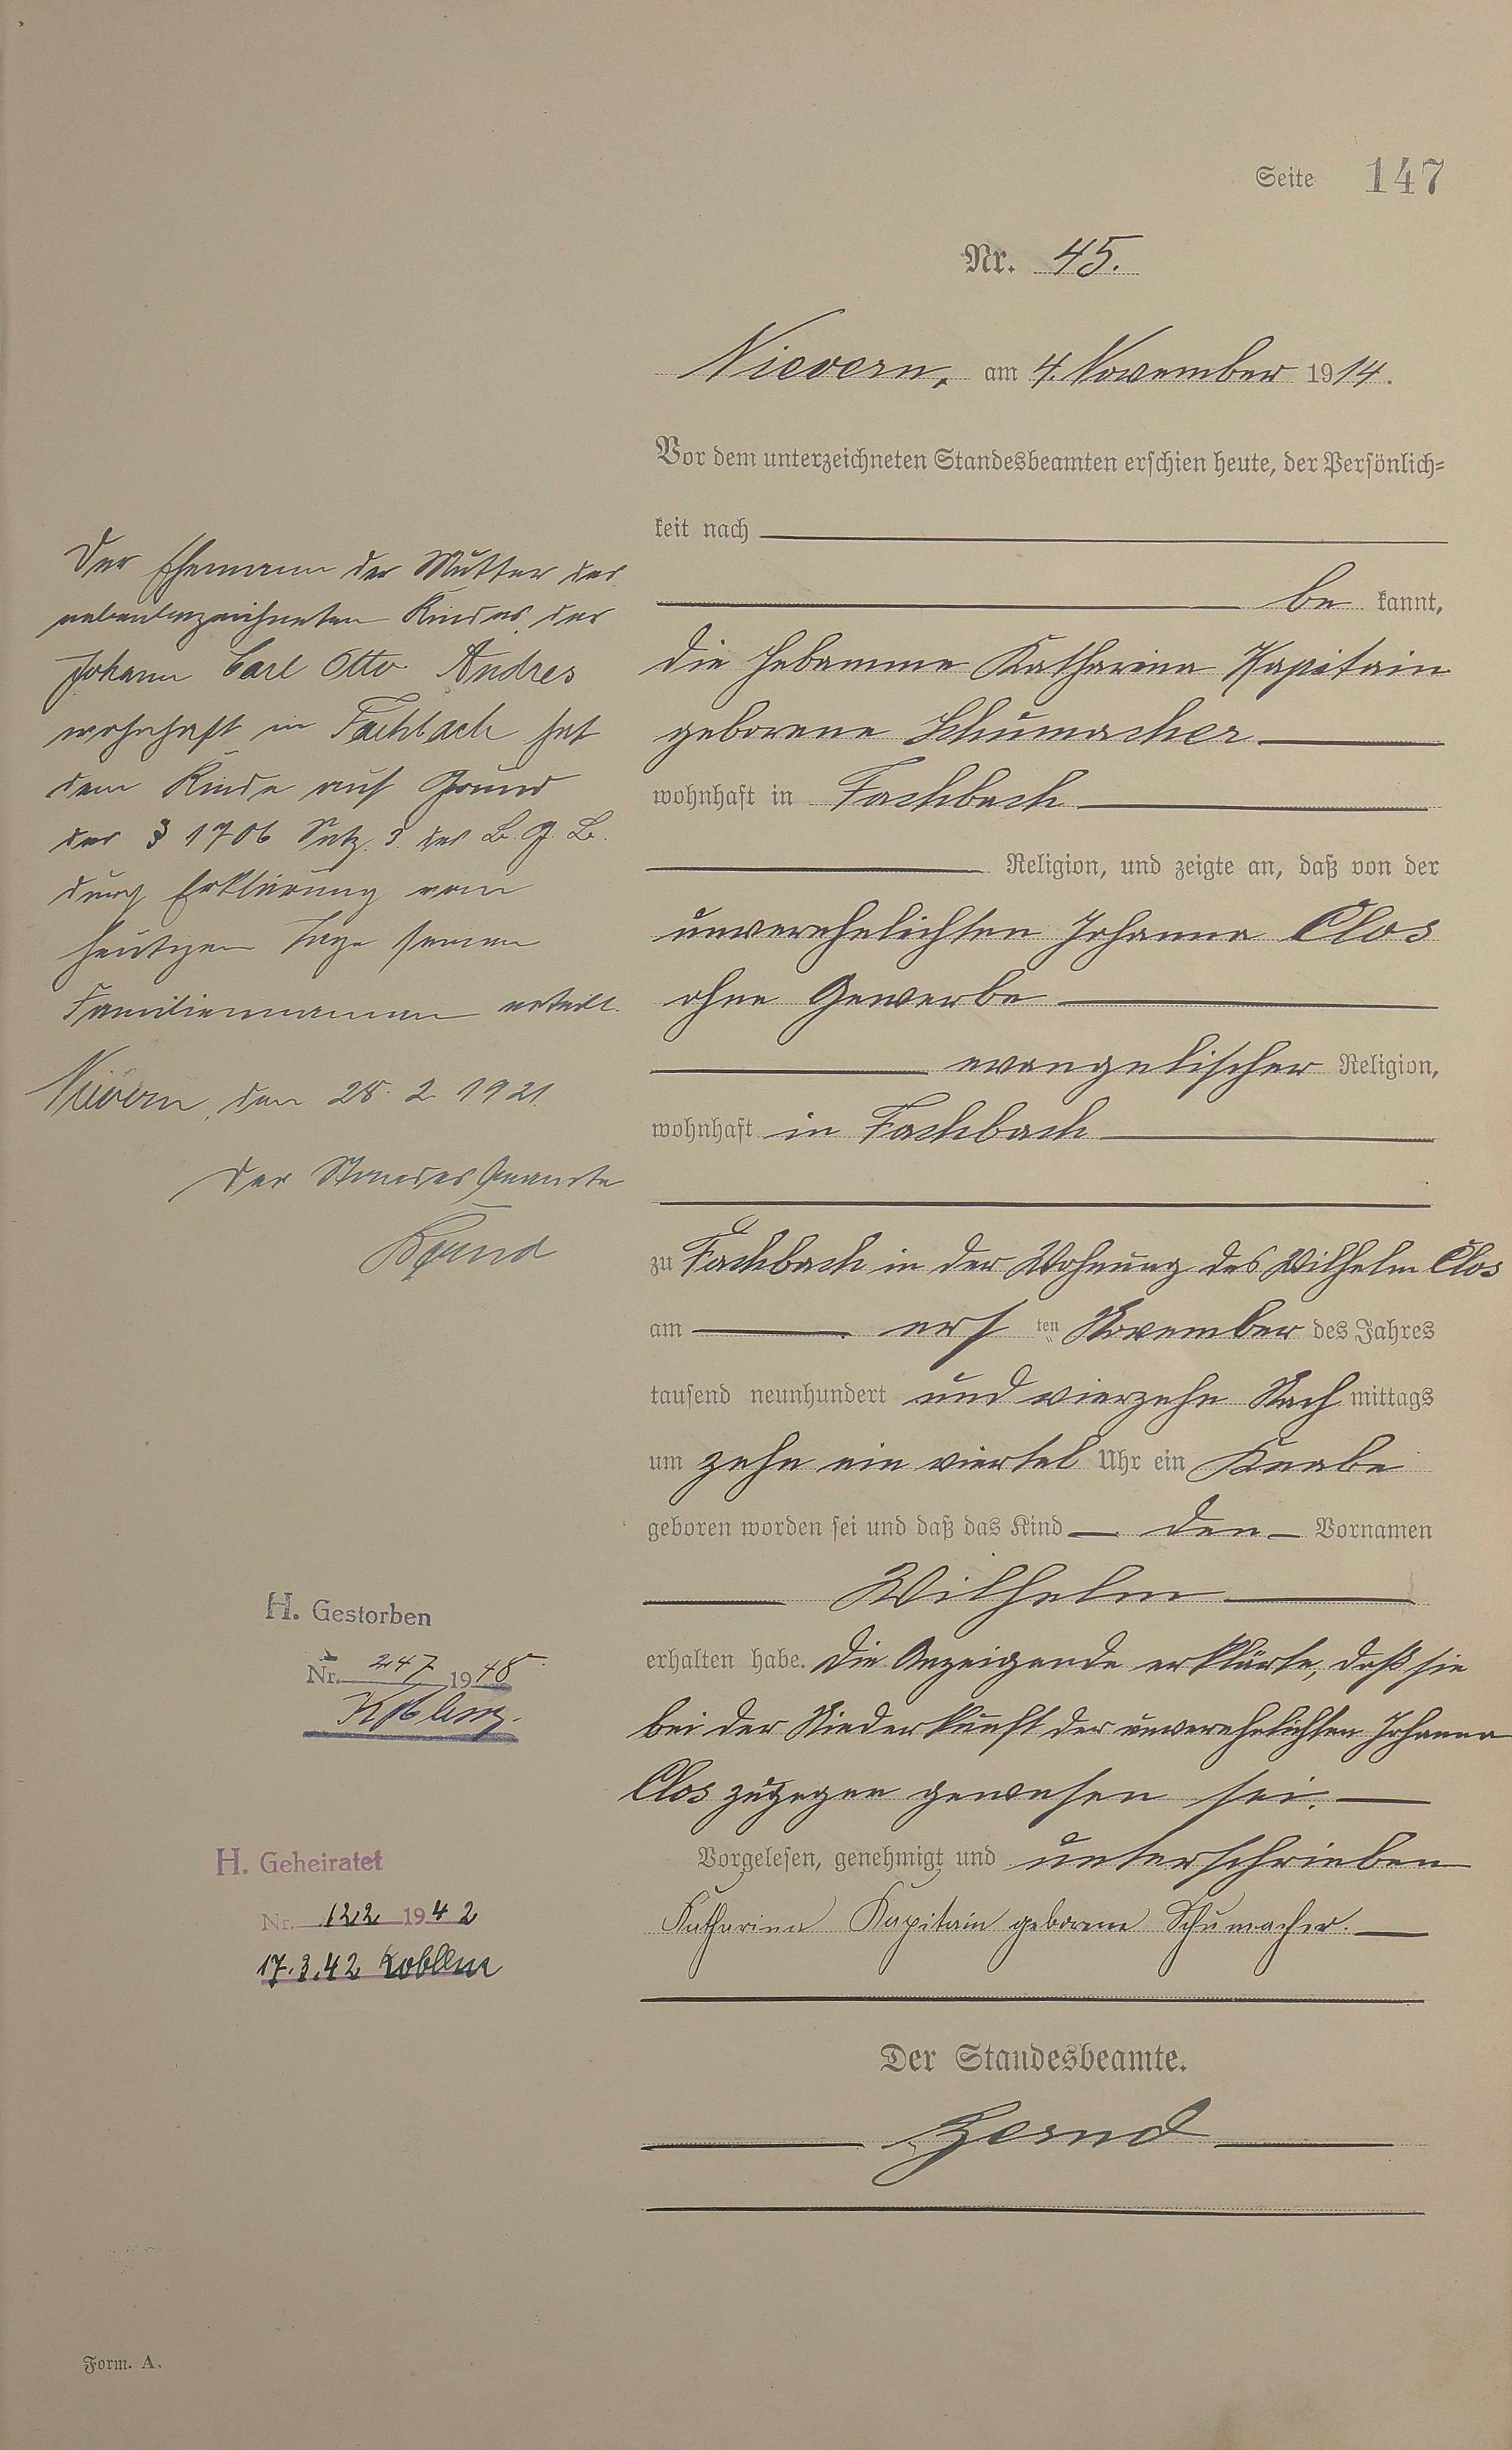 Seite 147
Nr. 45.
Nievern, am 4. November 1914.
Vor dem unterzeichneten Standesbeamten erschien heute, der Persönlich=
keit nach
be kannt,
die Hebamme Katharina Kapitain
geborene Schumacher
wohnhaft in Fachbach
Religion, und zeigte an, daß von der
unverehelichten Johanna Clos
ohne Gewerbe
evangelischer Religion,
wohnhaft in Fachbach
zu Fachbach in der Wohnung des Wilhelm Clos
am ersten November des Jahres
tausend neunhundert und vierzehn Nach mittags
um zehn ein viertel Uhr ein Knabe
geboren worden sei und daß das Kind den Vornamen
Wilhelm
erhalten habe. Die Anzeigende erklärte, daß sie
bei der Niederkunft der unverehelichten Johanna
Clos zugegen gewesen sei.
Vorgelesen, genehmigt und unterschrieben
Katharina Kapitain geborene Schumacher.
Der Standesbeamte.
Der Ehemann der Mutter des
nebenbezeichneten Kindes der
Johann Carl Otto Andres
wohnhaft in Fachbach hat
dem Kinde auf Grund
des § 1706 Satz 3. des B. G. B.
durch Erklärung vom
heutigen Tage seinen
Familiennamen erteilt.
Nievern, den 28. 2. 1921.
Der Standesbeamte
H. Gestorben
Nr. 247 1948
Koblenz.
H. Geheiratet
Nr. 122 1942
17.3.42 Koblenz
Form. A.